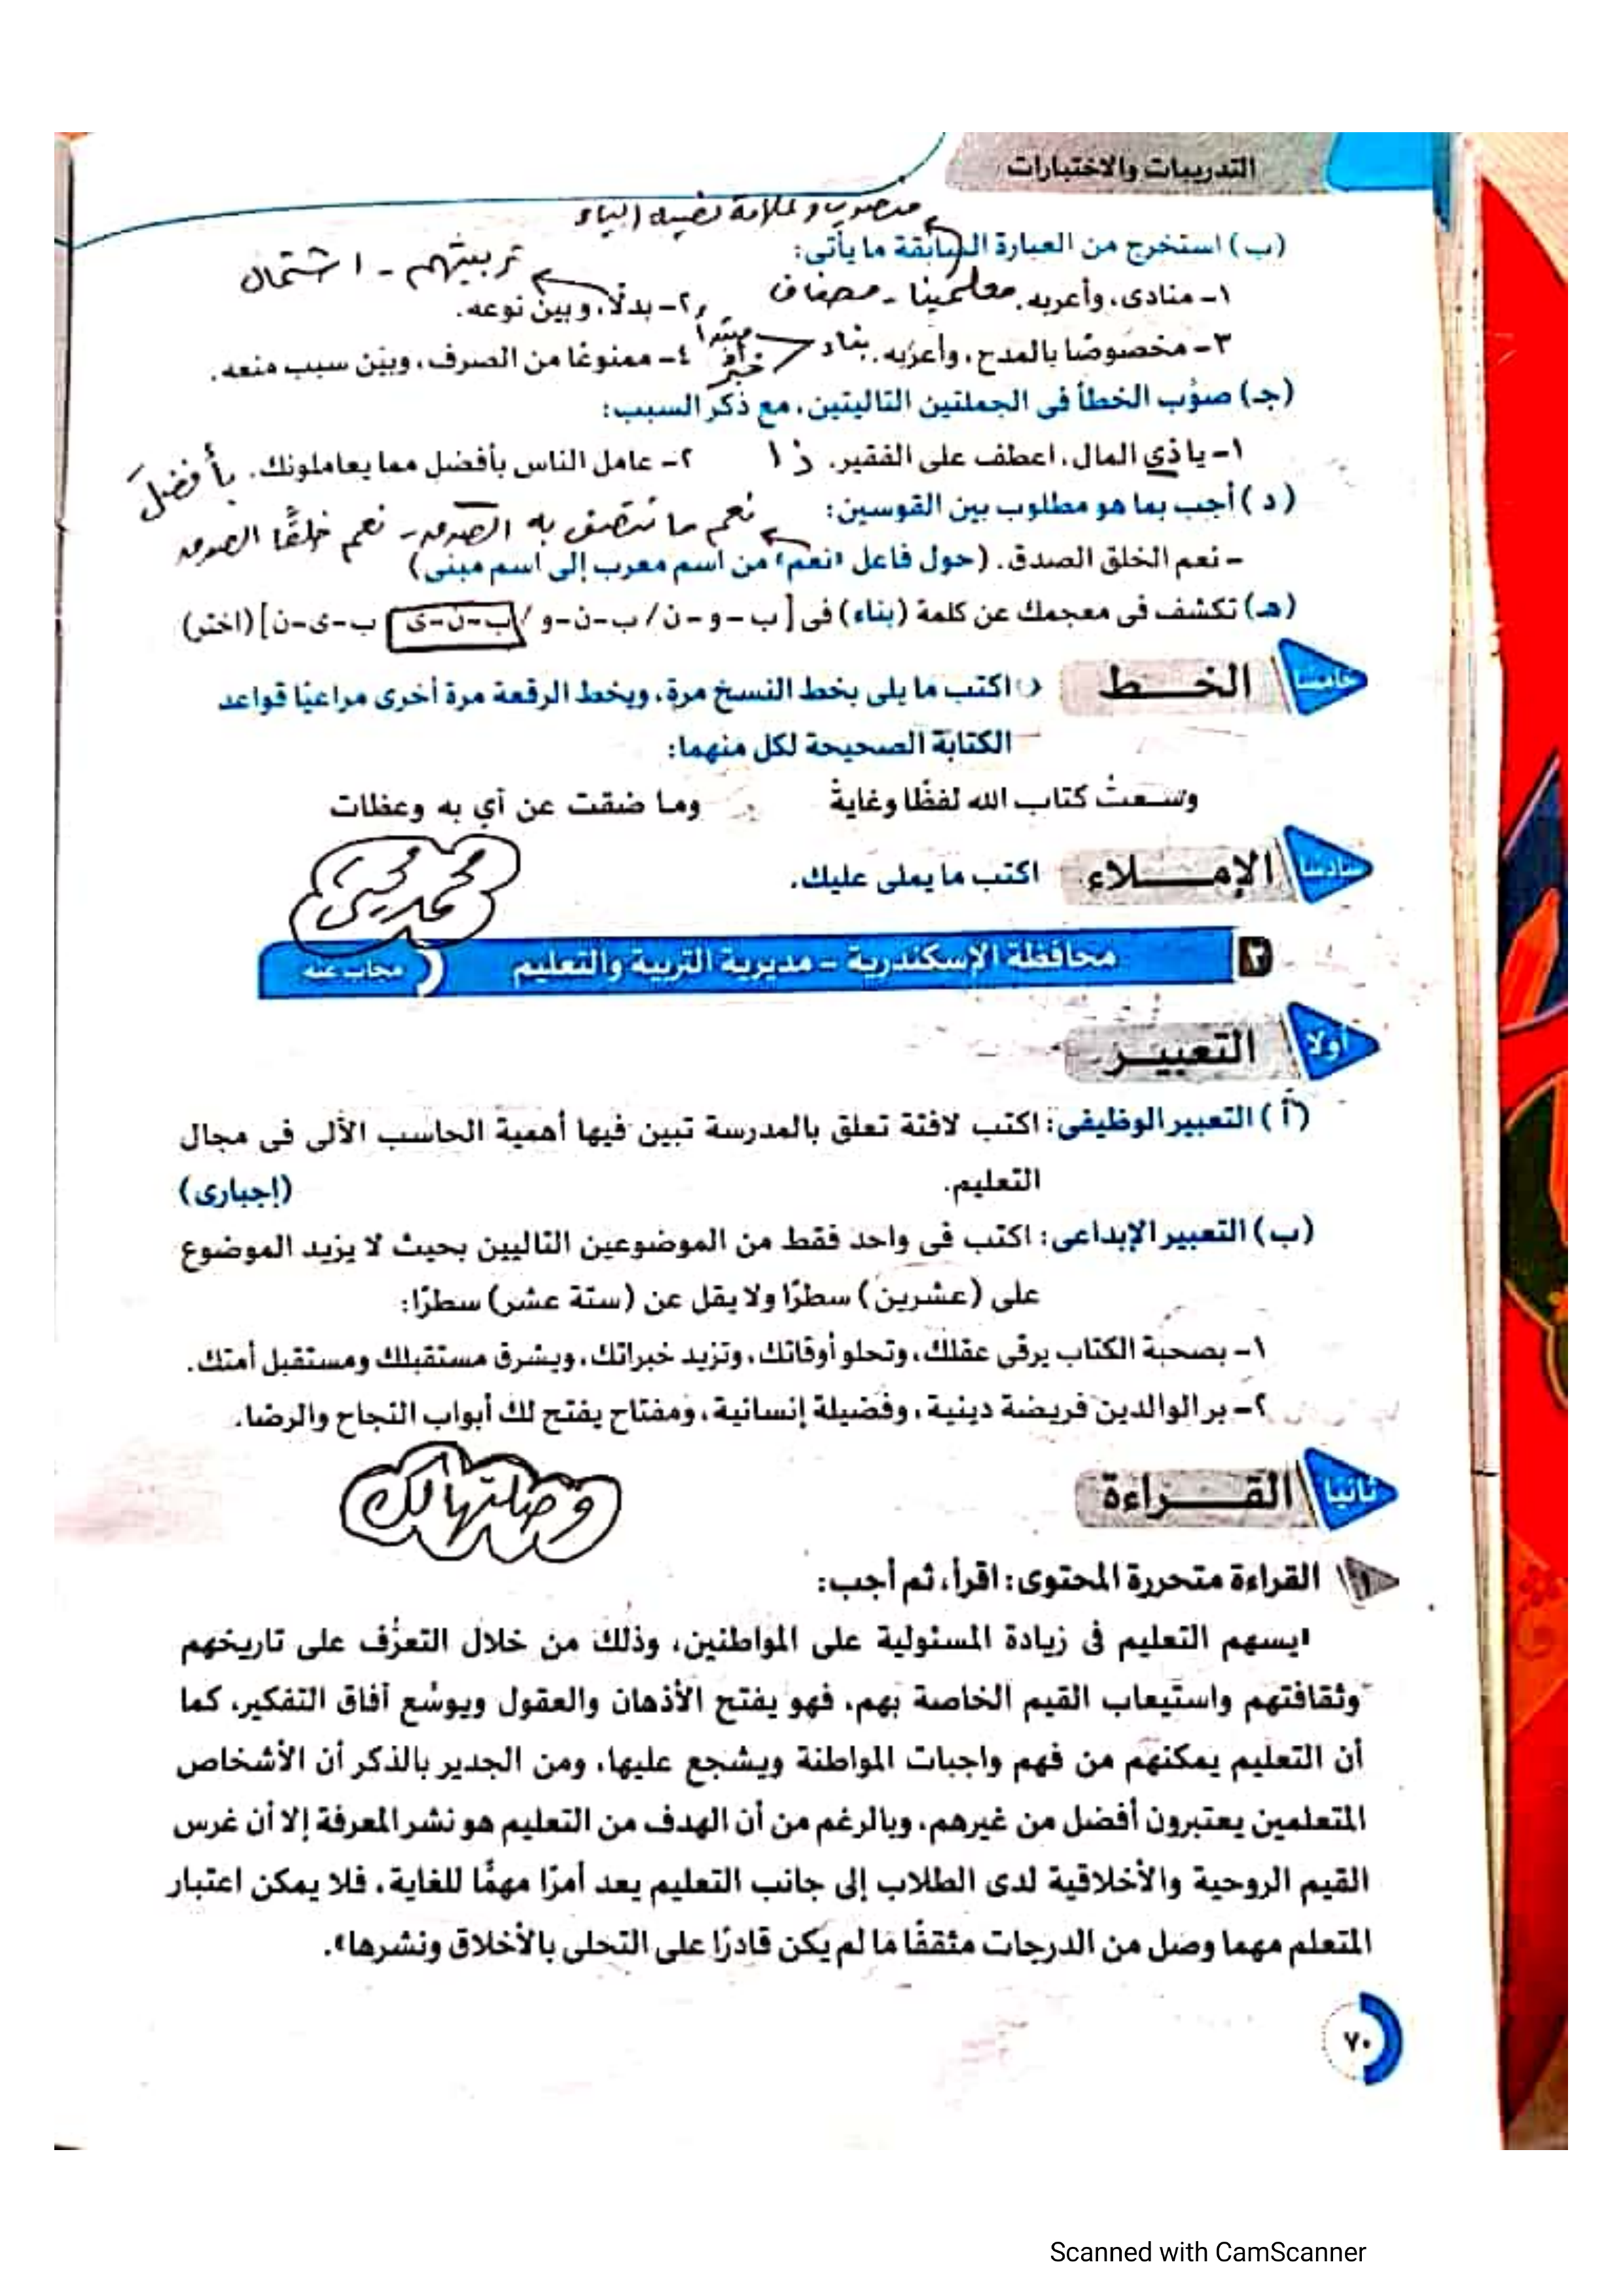 التدريبات والاختبارات
منصوب وعلامة نصبه الياء
(ب) استخرج من العبارة السابقة ما يأتى:
١- منادى، وأعربه. معلمينا - مضاف
٢- بدلًا، وبين نوعه. تربيتهم - اشتمال
٣- مخصوصًا بالمدح، وأعربه. بناء مبتدأ خبر
٤- ممنوعًا من الصرف، وبين سبب منعه.
(جـ) صوِّب الخطأ فى الجملتين التاليتين، مع ذكر السبب:
١- يا ذي المال، اعطف على الفقير. ذا
٢- عامل الناس بأفضل مما يعاملونك. بأفضلَ
(د) أجب بما هو مطلوب بين القوسين:
نعم ما تتصف به الصدق - نعم خلقًا الصدق
- نعم الخلق الصدق. (حول فاعل «نعم» من اسم معرب إلى اسم مبنى)
(هـ) تكشف فى معجمك عن كلمة (بناء) فى [ب-و-ن/ ب-ن-و/ ب-ن-ى ب-ى-ن] (اختر)
خامسا
الخــط
اكتب ما يلى بخط النسخ مرة، وبخط الرقعة مرة أخرى مراعيًا قواعد
الكتابة الصحيحة لكل منهما:
وسعتُ كتاب الله لفظًا وغايةً
وما ضقت عن آي به وعظات
سادسا
الإمــلاء
اكتب ما يملى عليك.
محمد محيى
٣
محافظة الإسكندرية - مديرية التربية والتعليم
مجاب عنه
أولا
التعبيــر
(أ) التعبير الوظيفى: اكتب لافتة تعلق بالمدرسة تبين فيها أهمية الحاسب الألى فى مجال
التعليم.
(إجبارى)
(ب) التعبير الإبداعى: اكتب فى واحد فقط من الموضوعين التاليين بحيث لا يزيد الموضوع
على (عشرين) سطرًا ولا يقل عن (ستة عشر) سطرًا:
١- بصحبة الكتاب يرقى عقلك، وتحلو أوقاتك، وتزيد خبراتك، ويشرق مستقبلك ومستقبل أمتك.
٢- بر الوالدين فريضة دينية، وفضيلة إنسانية، ومفتاح يفتح لك أبواب النجاح والرضا.
ثانيا
القــراءة
وصلتهالك
١ القراءة متحررة المحتوى: اقرأ، ثم أجب:
«يسهم التعليم فى زيادة المسئولية على المواطنين، وذلك من خلال التعرُّف على تاريخهم
وثقافتهم واستيعاب القيم الخاصة بهم، فهو يفتح الأذهان والعقول ويوسِّع آفاق التفكير، كما
أن التعليم يمكنهم من فهم واجبات المواطنة ويشجع عليها، ومن الجدير بالذكر أن الأشخاص
المتعلمين يعتبرون أفضل من غيرهم، وبالرغم من أن الهدف من التعليم هو نشر المعرفة إلا أن غرس
القيم الروحية والأخلاقية لدى الطلاب إلى جانب التعليم يعد أمرًا مهمًّا للغاية، فلا يمكن اعتبار
المتعلم مهما وصل من الدرجات مثقفًا ما لم يكن قادرًا على التحلى بالأخلاق ونشرها».
٧٠
Scanned with CamScanner